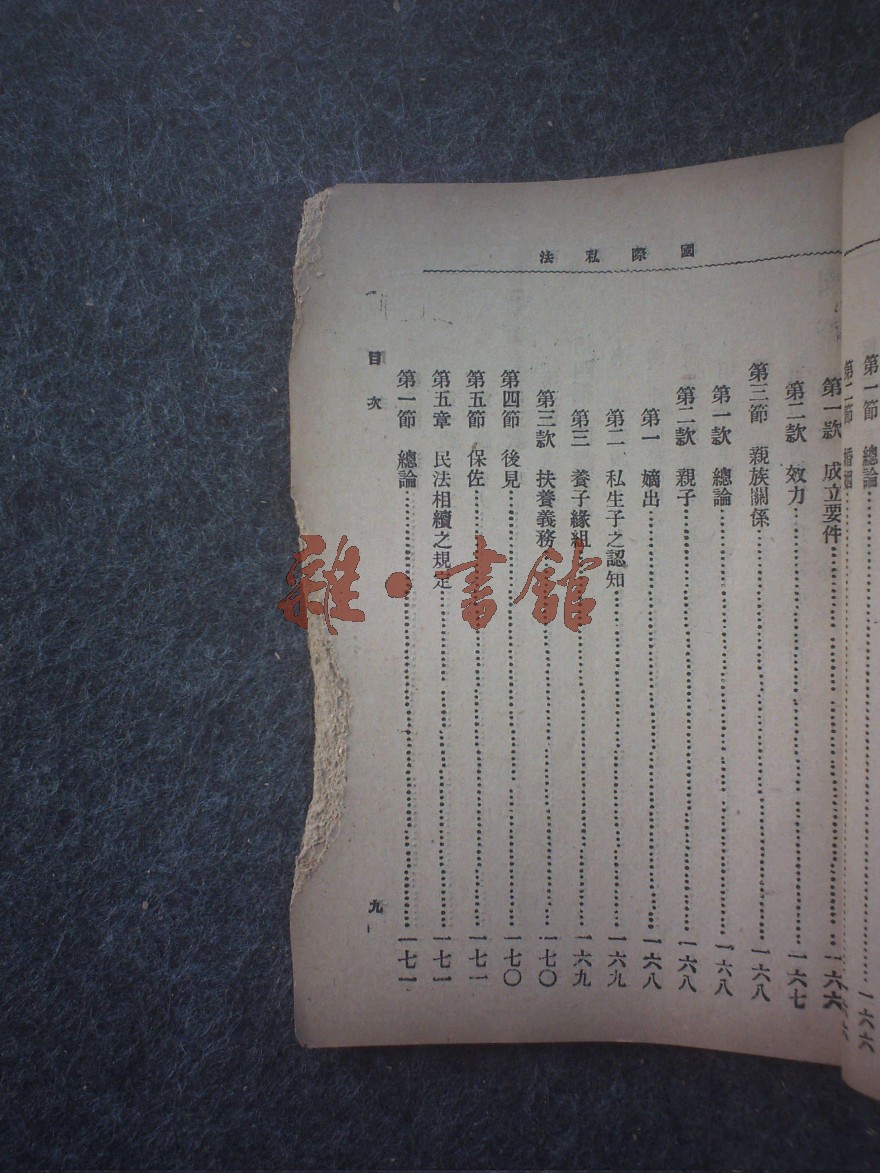 國際私法
第一節　總論……一六六
第二節　婚姻
第一款　成立要件……一六六
第二款　效力……一六七
第三節　親族關係……一六八
第一款　總論……一六八
第二款　親子……一六八
第一　嫡出……一六八
第二　私生子之認知……一六九
第三　養子緣組……一六九
第三款　扶養義務……一七〇
第四節　後見……一七〇
第五節　保佐……一七一
第五章　民法相續之規定……一七一
第一節　總論……一七一
目次
九
雜·書館